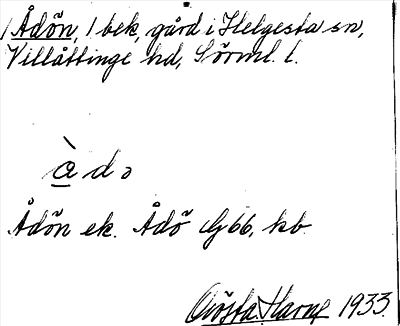 Ådön, 1 bek, gård i Helgesta sn,
Villåttinge hd, Sörml. l.
Ådön ek. Ådö Gj 66, kb.
Gösta Harne 1933.